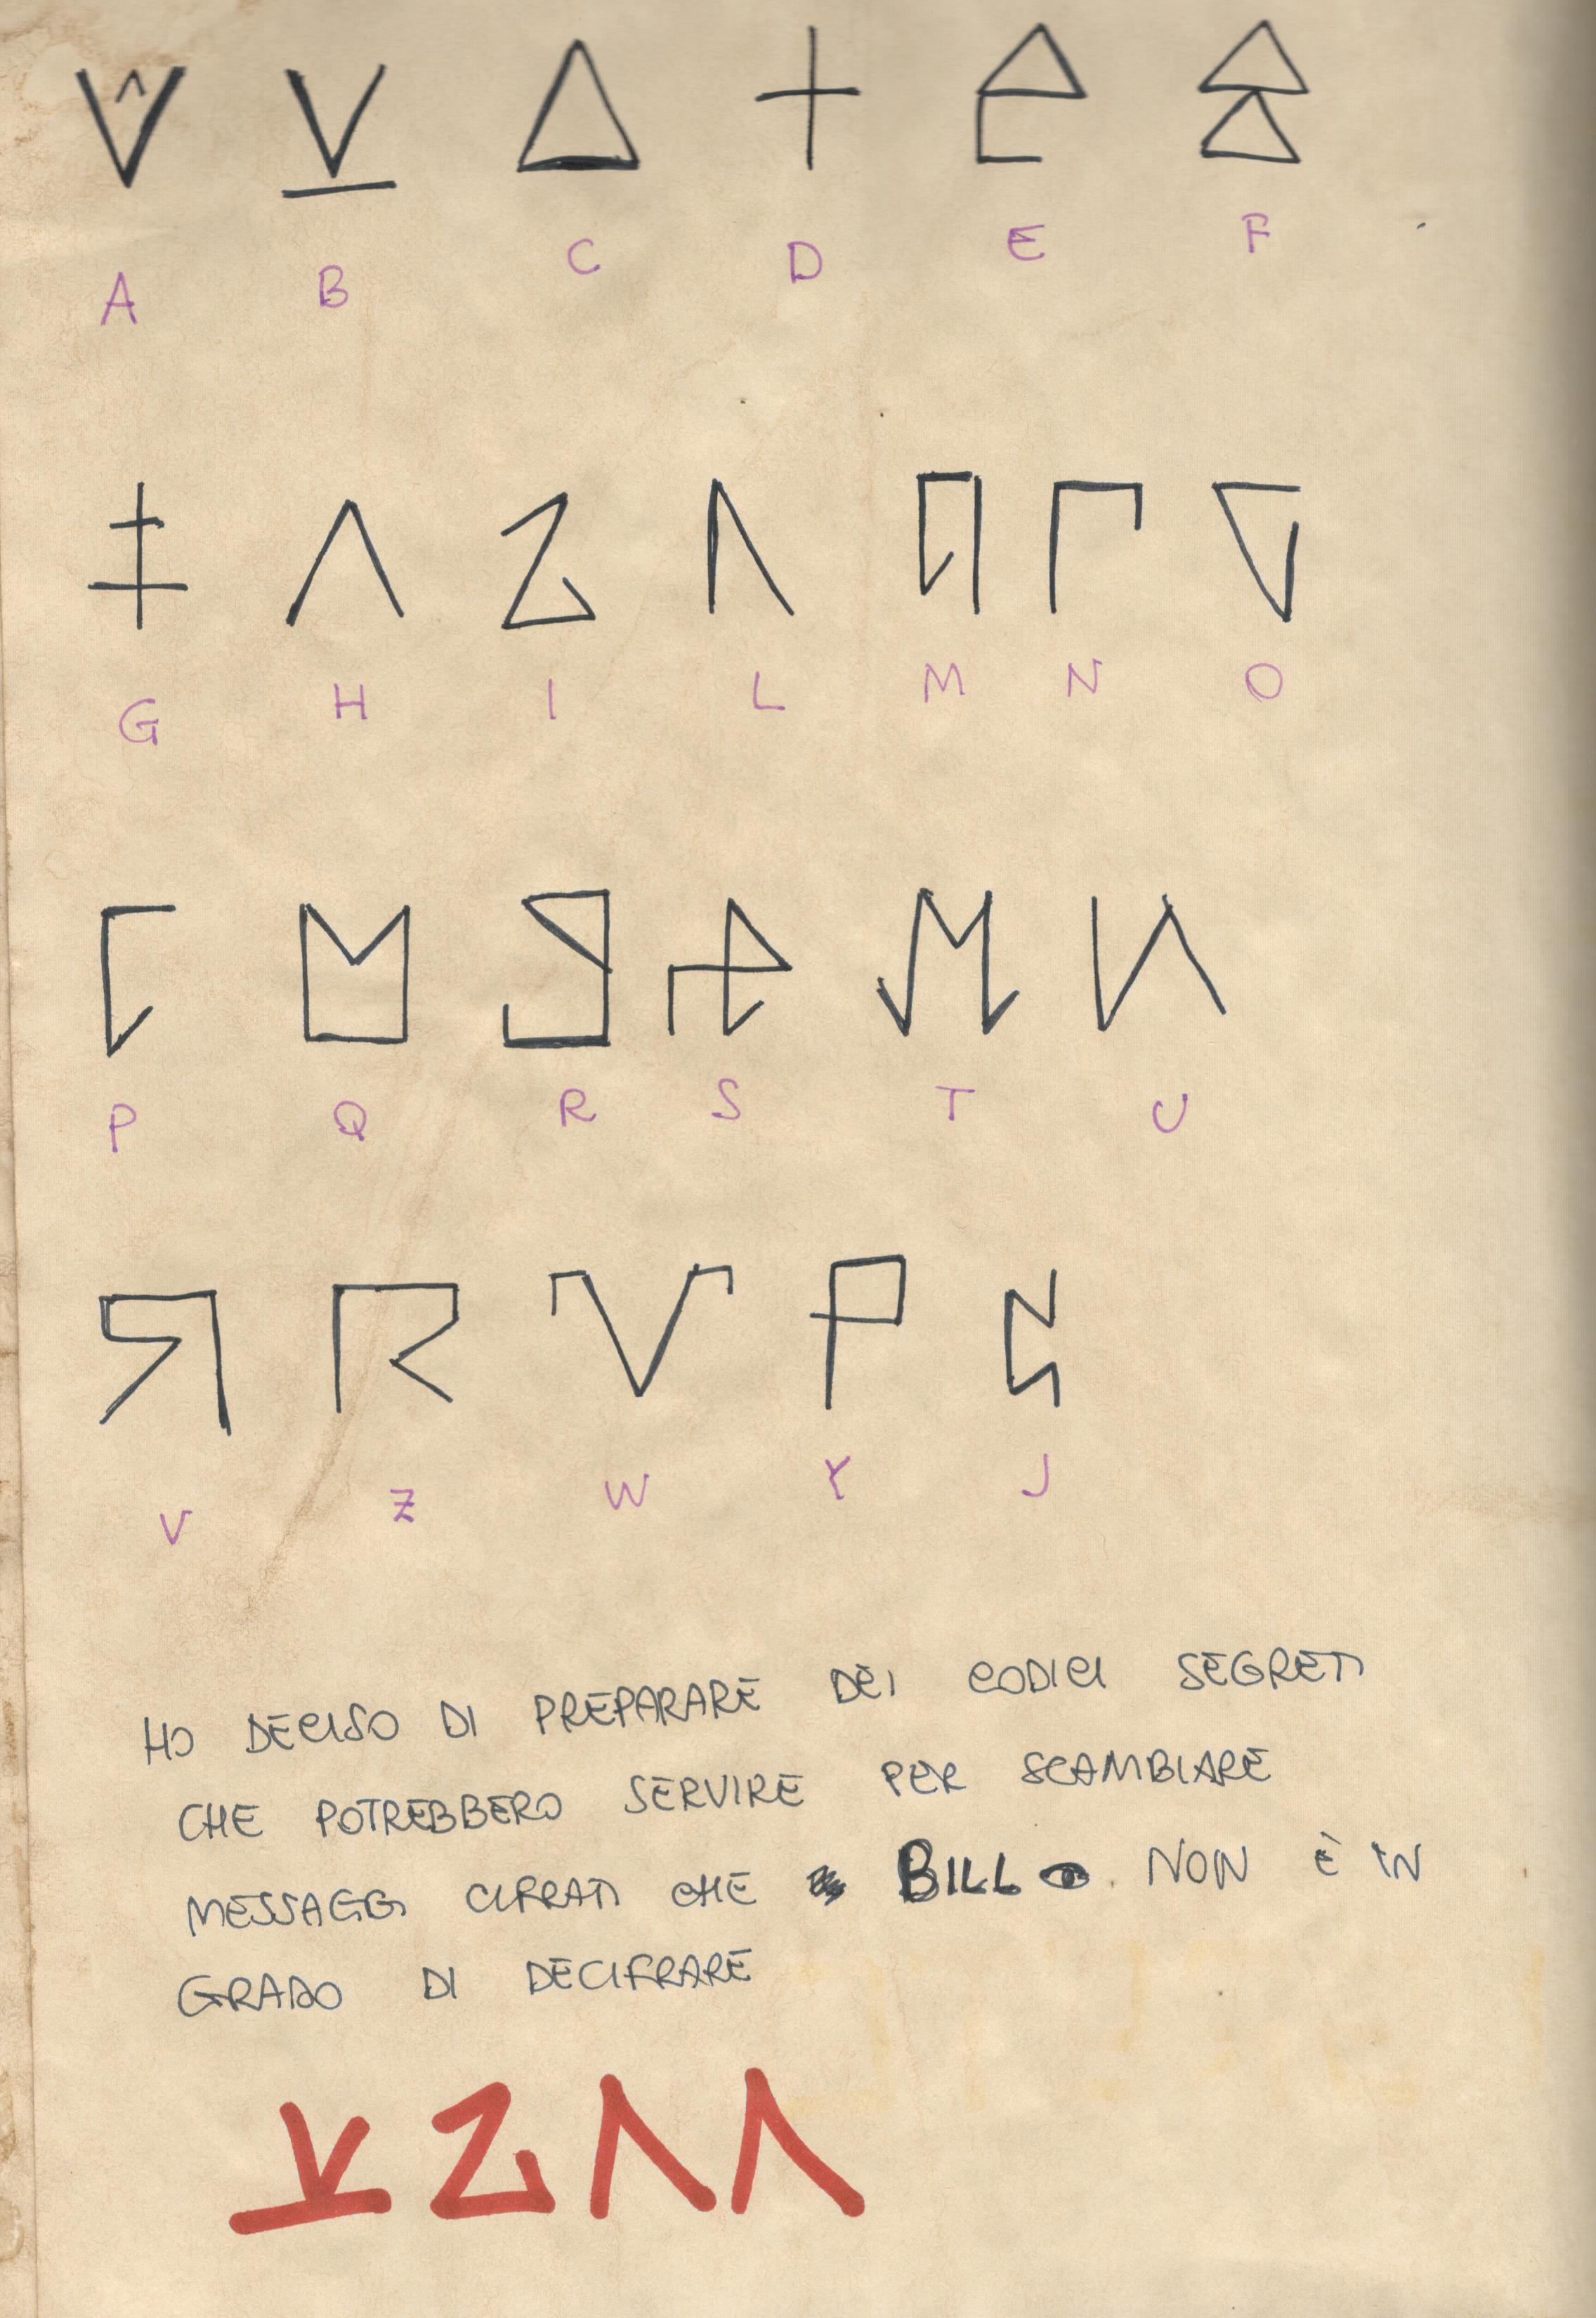 A B C D E F
G H I L M N O
P Q R S T U
V Z W Y J
HO DECISO DI PREPARARE DEI CODICI SEGRETI
CHE POTREBBERO SERVIRE PER SCAMBIARE
MESSAGGI CIFRATI CHE BILL NON È IN
GRADO DI DECIFRARE